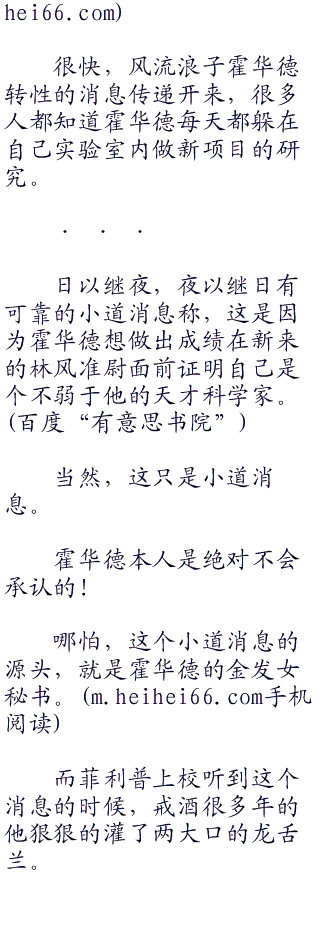 hei66.com)
很快，风流浪子霍华德
转性的消息传递开来，很多
人都知道霍华德每天都躲在
自己实验室内做新项目的研
究。
· · ·
日以继夜，夜以继日有
可靠的小道消息称，这是因
为霍华德想做出成绩在新来
的林风准尉面前证明自己是
个不弱于他的天才科学家。
(百度“有意思书院”)
当然，这只是小道消
息。
霍华德本人是绝对不会
承认的！
哪怕，这个小道消息的
源头，就是霍华德的金发女
秘书。(m.heihei66.com手机
阅读)
而菲利普上校听到这个
消息的时候，戒酒很多年的
他狠狠的灌了两大口的龙舌
兰。